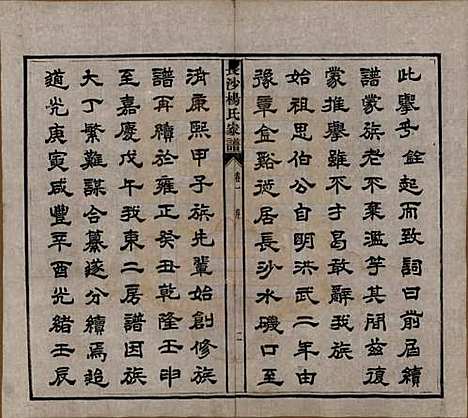 此擧乎餘起而致詞曰前屆續
譜蒙族老不棄濫竽其間玆復
蒙推擧雖不才曷敢辭我族
始祖思伯公自明洪武二年由
豫章金谿徙居長沙水磯口至
長沙楊氏家譜
卷一
序
二
淸康熙甲子族先輩始創修族
譜再續於雍正癸丑乾隆壬申
至嘉慶戊午我東二房譜因族
大丁繁難謀合纂遂分續焉迨
道光庚寅咸豐辛酉光緒壬辰